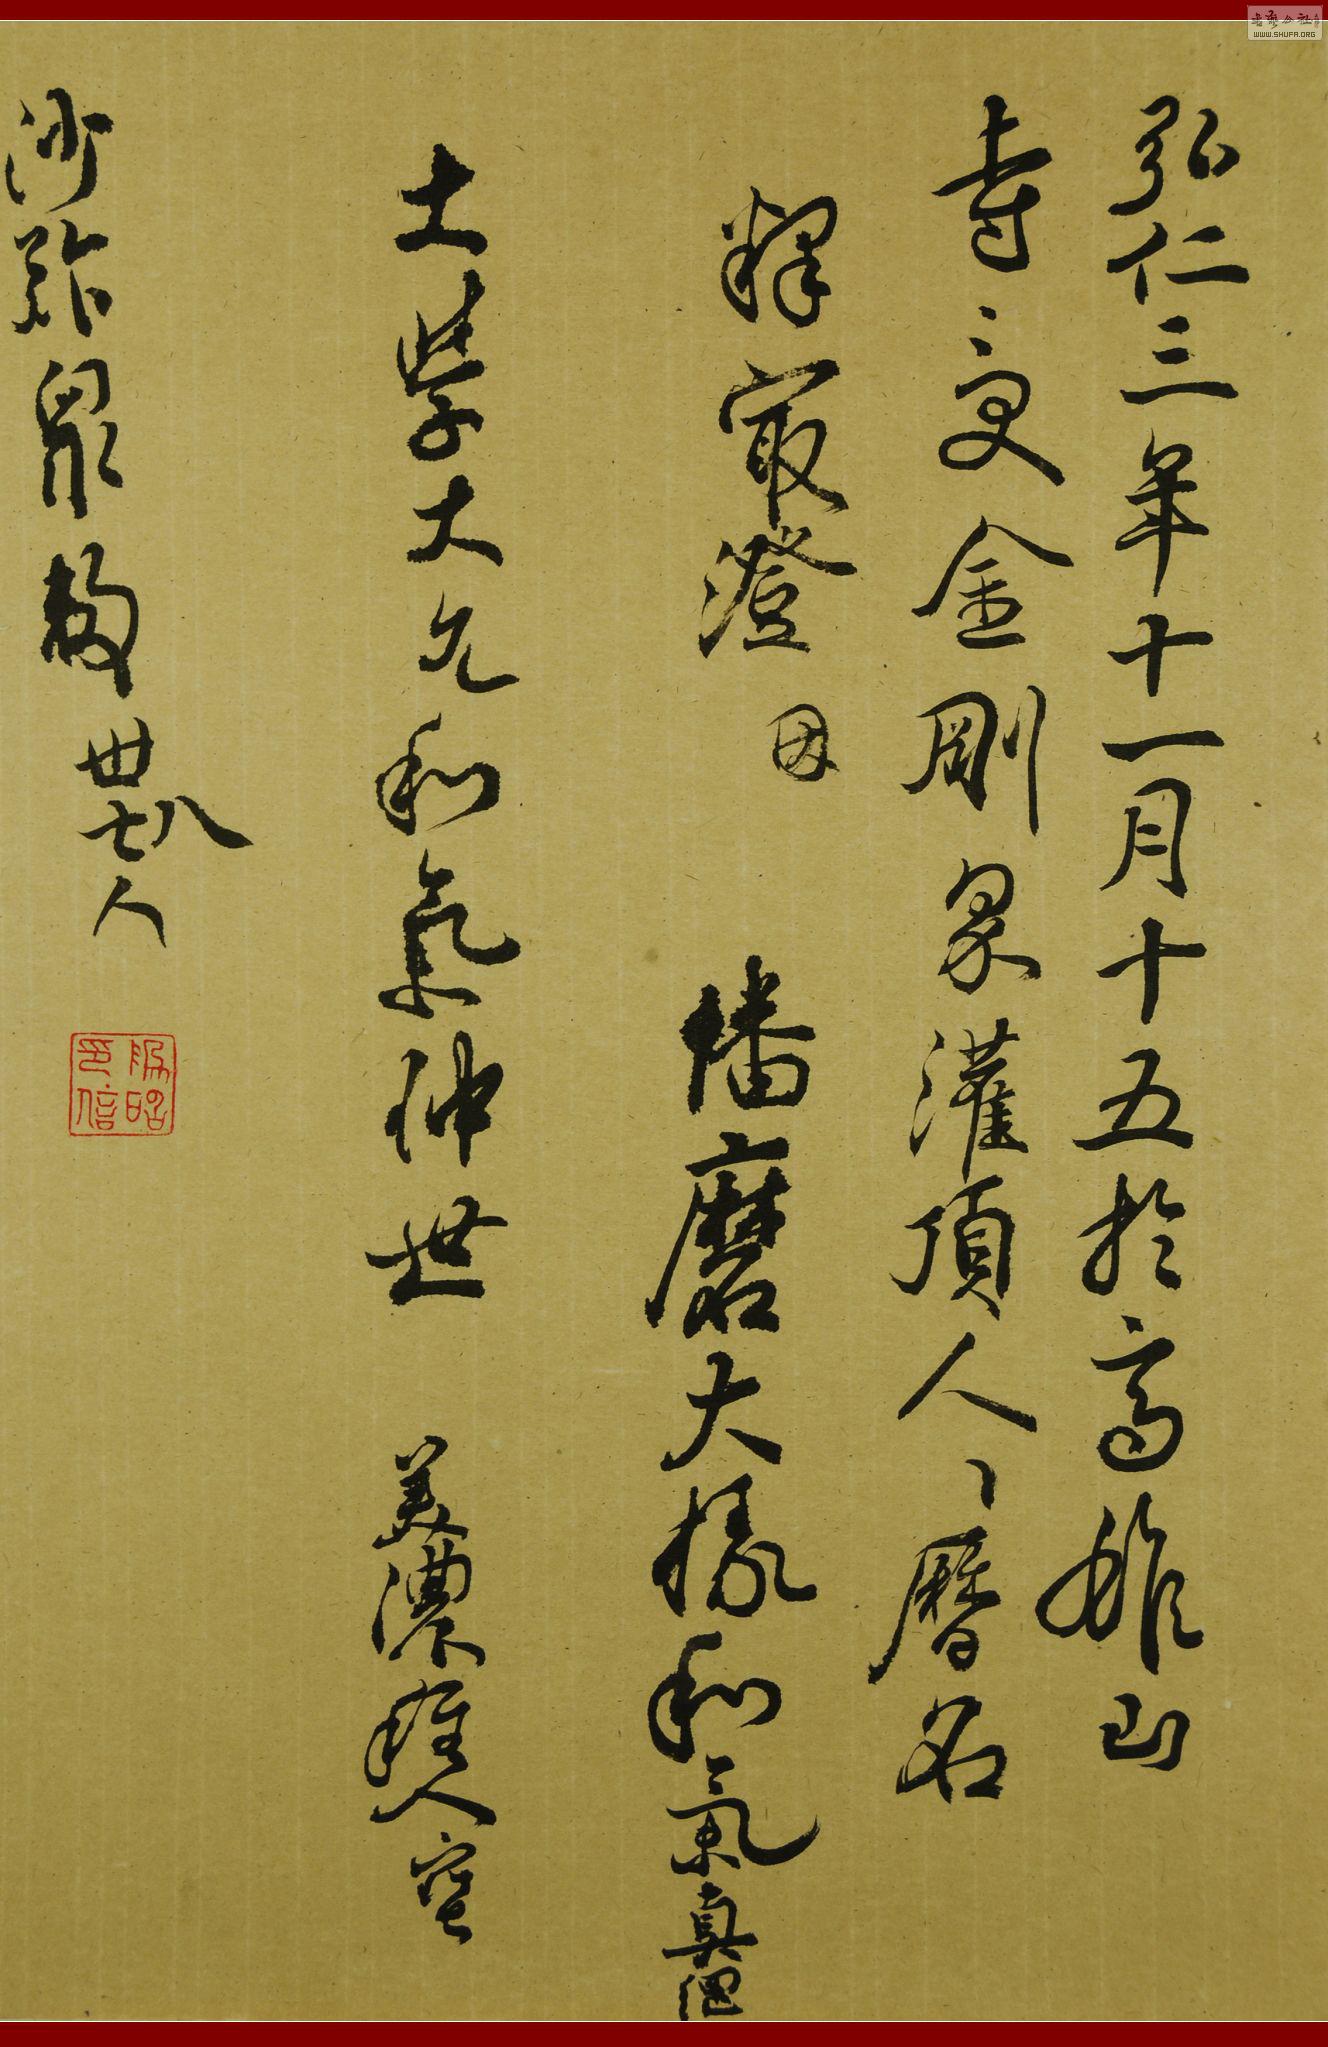 書藝公社
WWW.SHUFA.ORG
弘仁三年十一月十五於高雄山
寺受金剛界灌頂人々暦名
釋最澄 因 播磨大掾和氣真綱
大學大允和氣仲世 美濃種人 宝
沙弥眾數卌七八人
印信